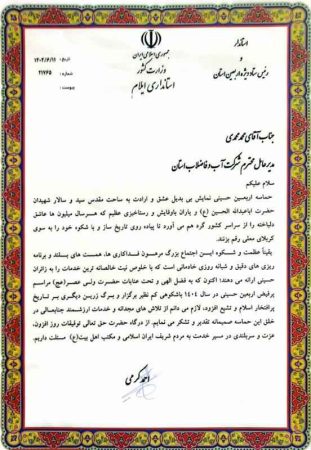 استاندار
و
رئیس ستاد ویژه اربعین استان
جمهوری اسلامی ایران
وزارت کشور
استانداری ایلام
تاریخ : ۱۴۰۴/۶/۱۱
شماره : ۲۱۷۶۵
پیوست :
جناب آقای محمد محمدی
مدیرعامل محترم شرکت آب و فاضلاب استان
سلام علیکم
حماسه اربعین حسینی نمایش بی بدیل عشق و ارادت به ساحت مقدس سید و سالار شهیدان
حضرت اباعبدالله الحسین (ع) و یاران باوفایش و رستاخیزی عظیم که هرسال میلیون ها عاشق
دلباخته را از سراسر کشور گرد هم می آورد تا پیاده روی تاریخ ساز و با شکوه خود را به سوی
کربلای معلی رقم بزنند.
یقیناً عظمت و شکوه این اجتماع بزرگ مرهون فداکاری ها، همت های بلند و برنامه
ریزی های دقیق و شبانه روزی خادمانی است که با خلوص نیت خالصانه ترین خدمات را به زائران
حسینی ارائه می دهند؛ اکنون که به فضل الهی و تحت عنایات حضرت ولی عصر(عج) مراسم
پرفیض اربعین حسینی در سال ۱۴۰۴ باشکوهی کم نظیر برگزار و برگ زرین دیگری بر تاریخ
پرافتخار اسلام و تشیع افزود، لازم می دانم از تلاش های مجدانه و خدمات ارزشمند جنابعالی در
خلق این حماسه صمیمانه تقدیر و تشکر می نمایم. از درگاه حضرت حق تعالی توفیقات روز افزون،
عزت و سربلندی در مسیر خدمت به مردم شریف ایران اسلامی و مکتب اهل بیت(ع) مسئلت داریم.
احمد کرمی